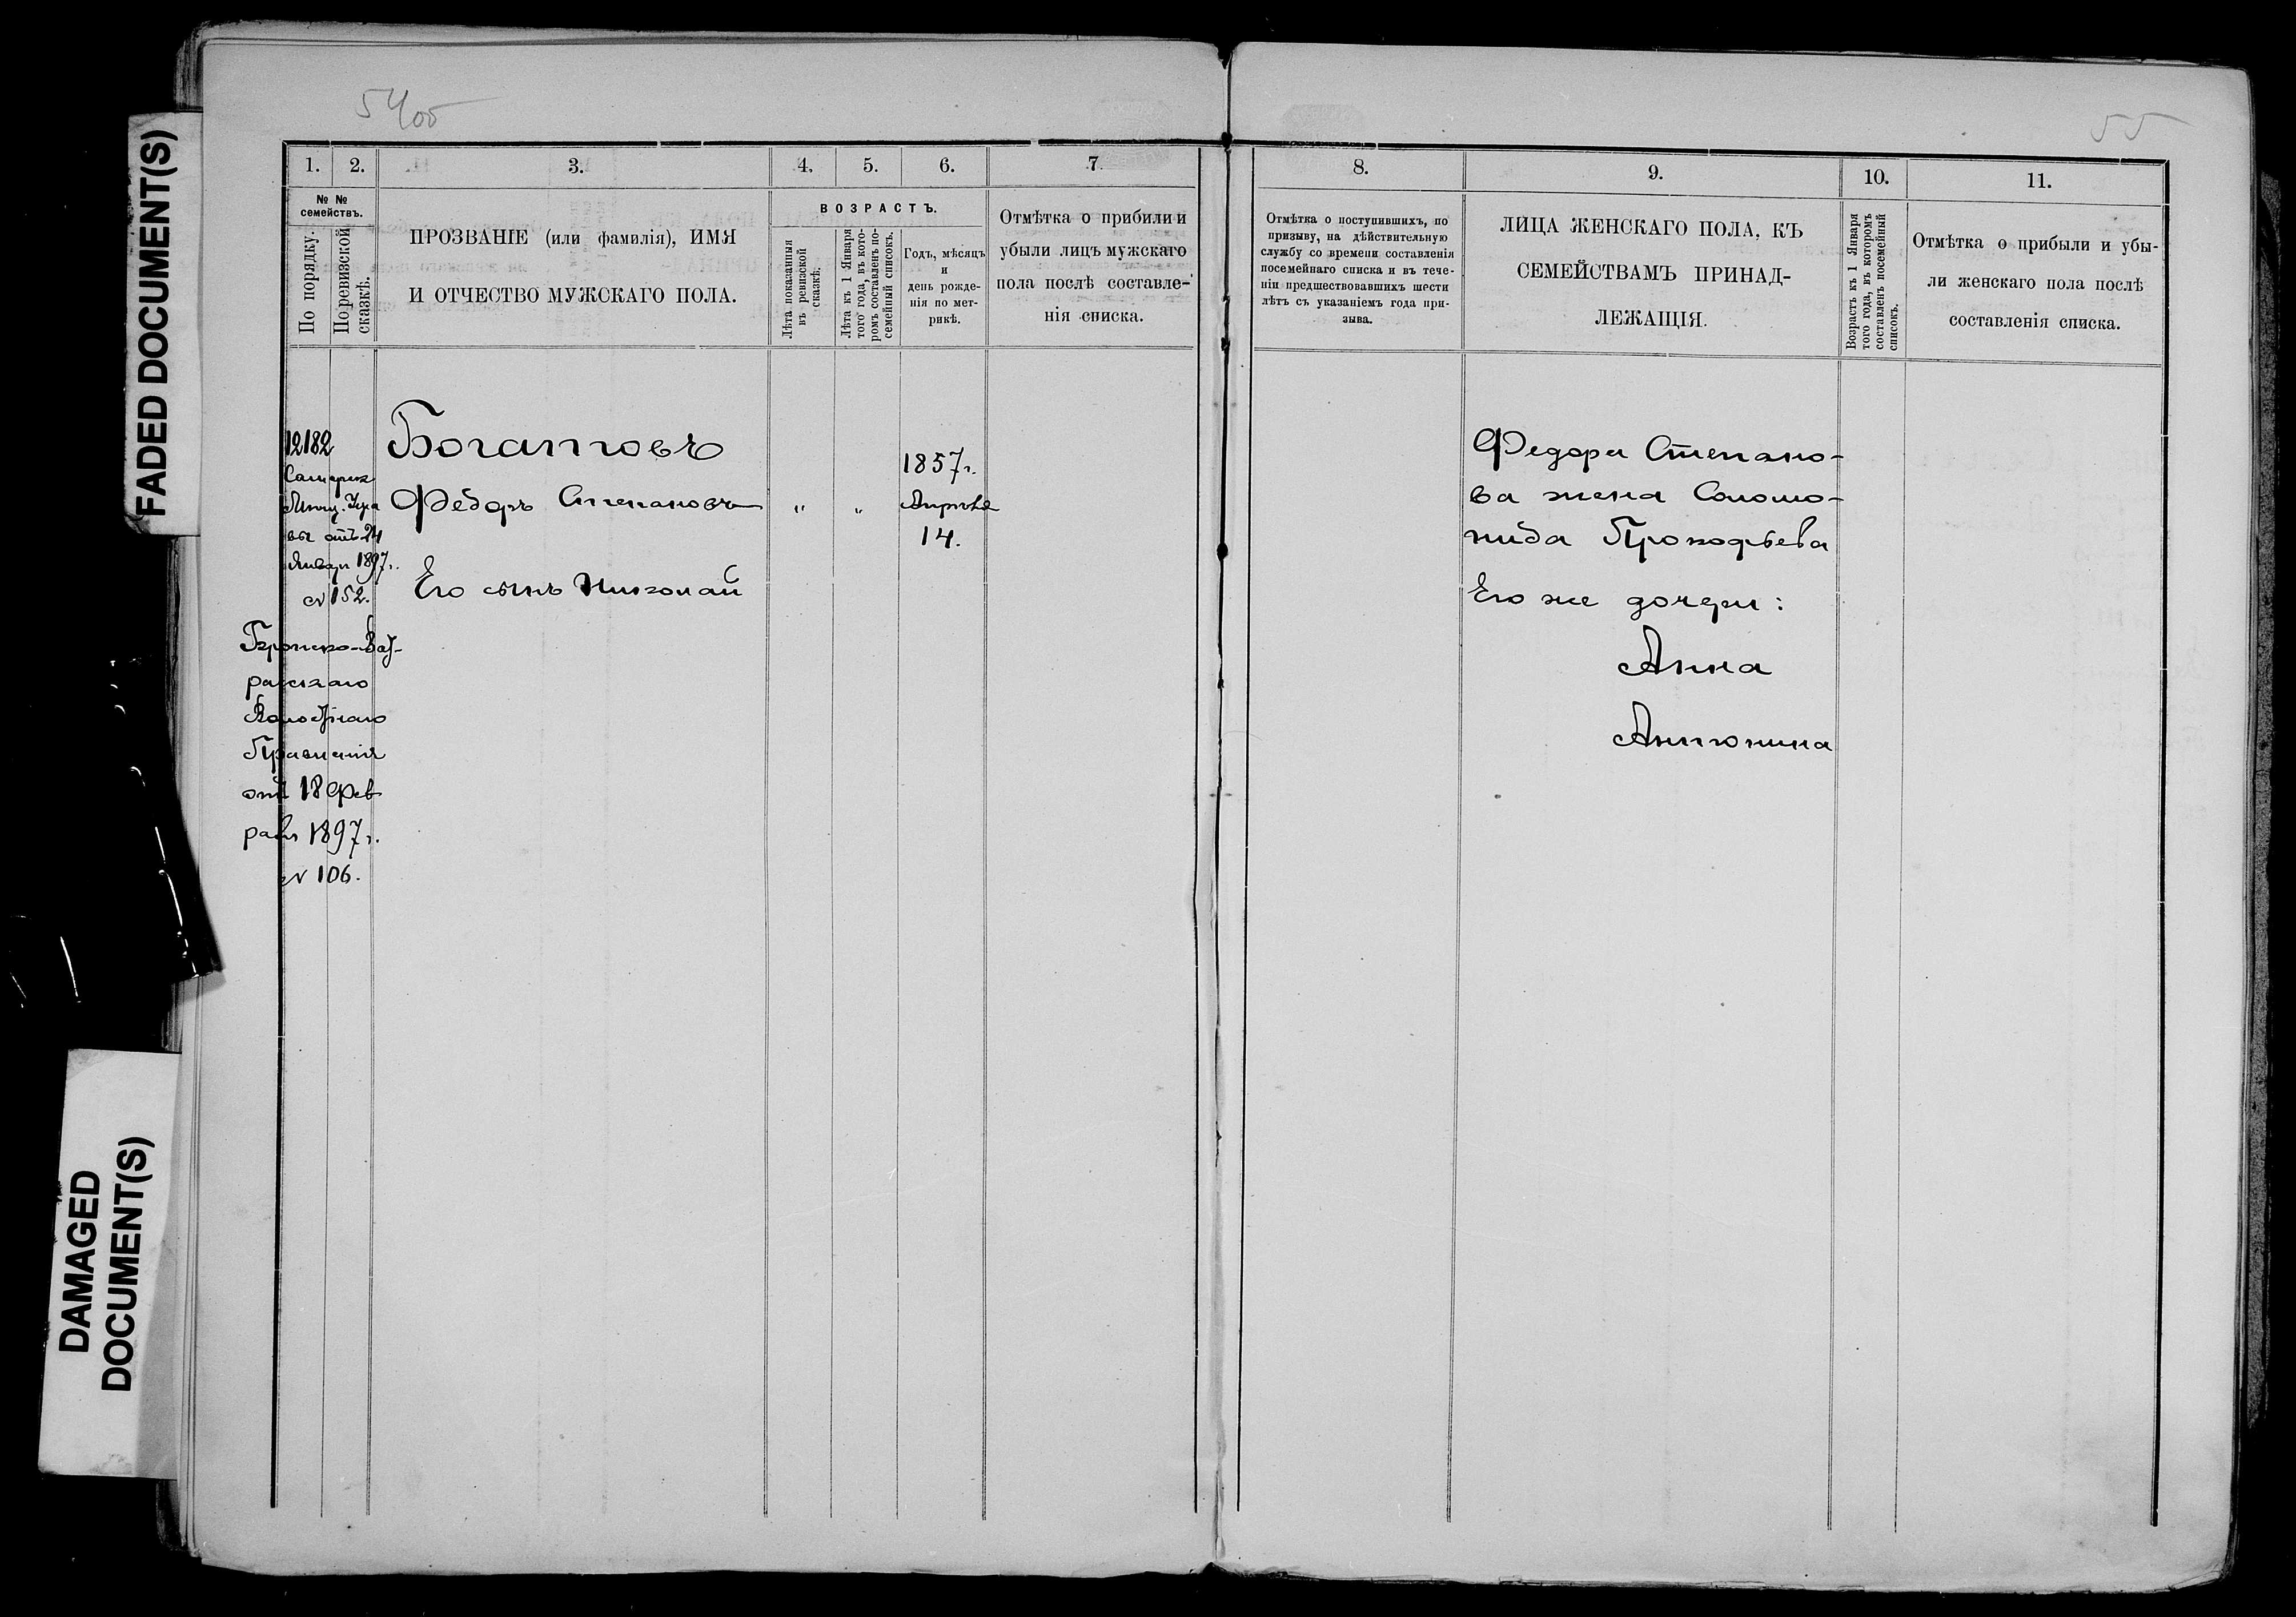 FADED DOCUMENT(S)
DAMAGED
DOCUMENT(S)
54об
1. 2. 3. 4. 5. 6. 7.
№ №
семействъ.
По порядку.
По ревизской
сказкѣ.
ПРОЗВАНІЕ (или фамилія), ИМЯ
И ОТЧЕСТВО МУЖСКАГО ПОЛА.
ВОЗРАСТЪ.
Лѣта показанныя
въ ревизской
сказкѣ.
Лѣта къ 1 Января
того года, въ кото-
ромъ составленъ по-
семейный списокъ.
Годъ, мѣсяцъ
и
день рожде-
нія по мет-
рикѣ.
Отмѣтка о прибыли и
убыли лицъ мужскаго
пола послѣ составле-
нія списка.
12182
отъ 24
Января 1897г.
№ 152.
Правленія
отъ 18 Фев
раля 1897г.
№ 106.
Богатовъ
Ѳедоръ Степановъ " "
1857г.
Апрѣля
14.
Его сынъ Николай
55
8. 9. 10. 11.
Отмѣтка о поступившихъ, по
призыву, на дѣйствительную
службу со времени составленія
посемейнаго списка и въ тече-
ніи предшествовавшихъ шести
лѣтъ съ указаніемъ года при-
зыва.
ЛИЦА ЖЕНСКАГО ПОЛА, КЪ
СЕМЕЙСТВАМЪ ПРИНАД-
ЛЕЖАЩІЯ.
Возрастъ къ 1 Января
того года, въ которомъ
составленъ посемейный
списокъ.
Отмѣтка о прибыли и убы-
ли женскаго пола послѣ
составленія списка.
Ѳедора Степано-
ва жена Соломо-
нида Прокофьева
Его же дочери:
Анна
Антонина